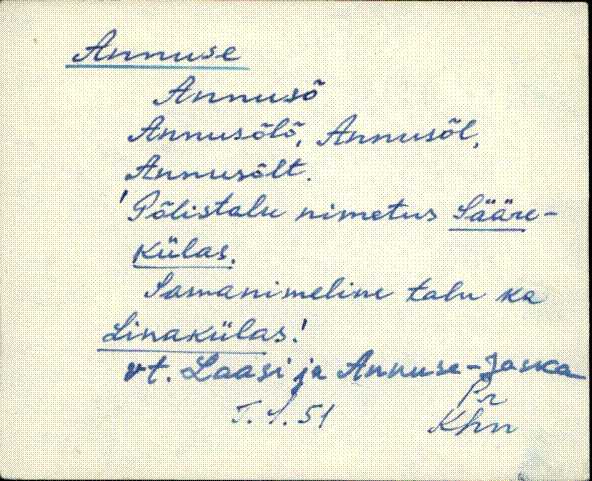 Annuse
Annusõ
Annusõlõ, Annusõl,
Annusõlt.
'Põlistalu nimetus Sääre-
külas.
Samanimeline talu ka
Linakülas.'
vt. Laasi ja Annuse-Jaska
Pr
T.S. 51 Khn